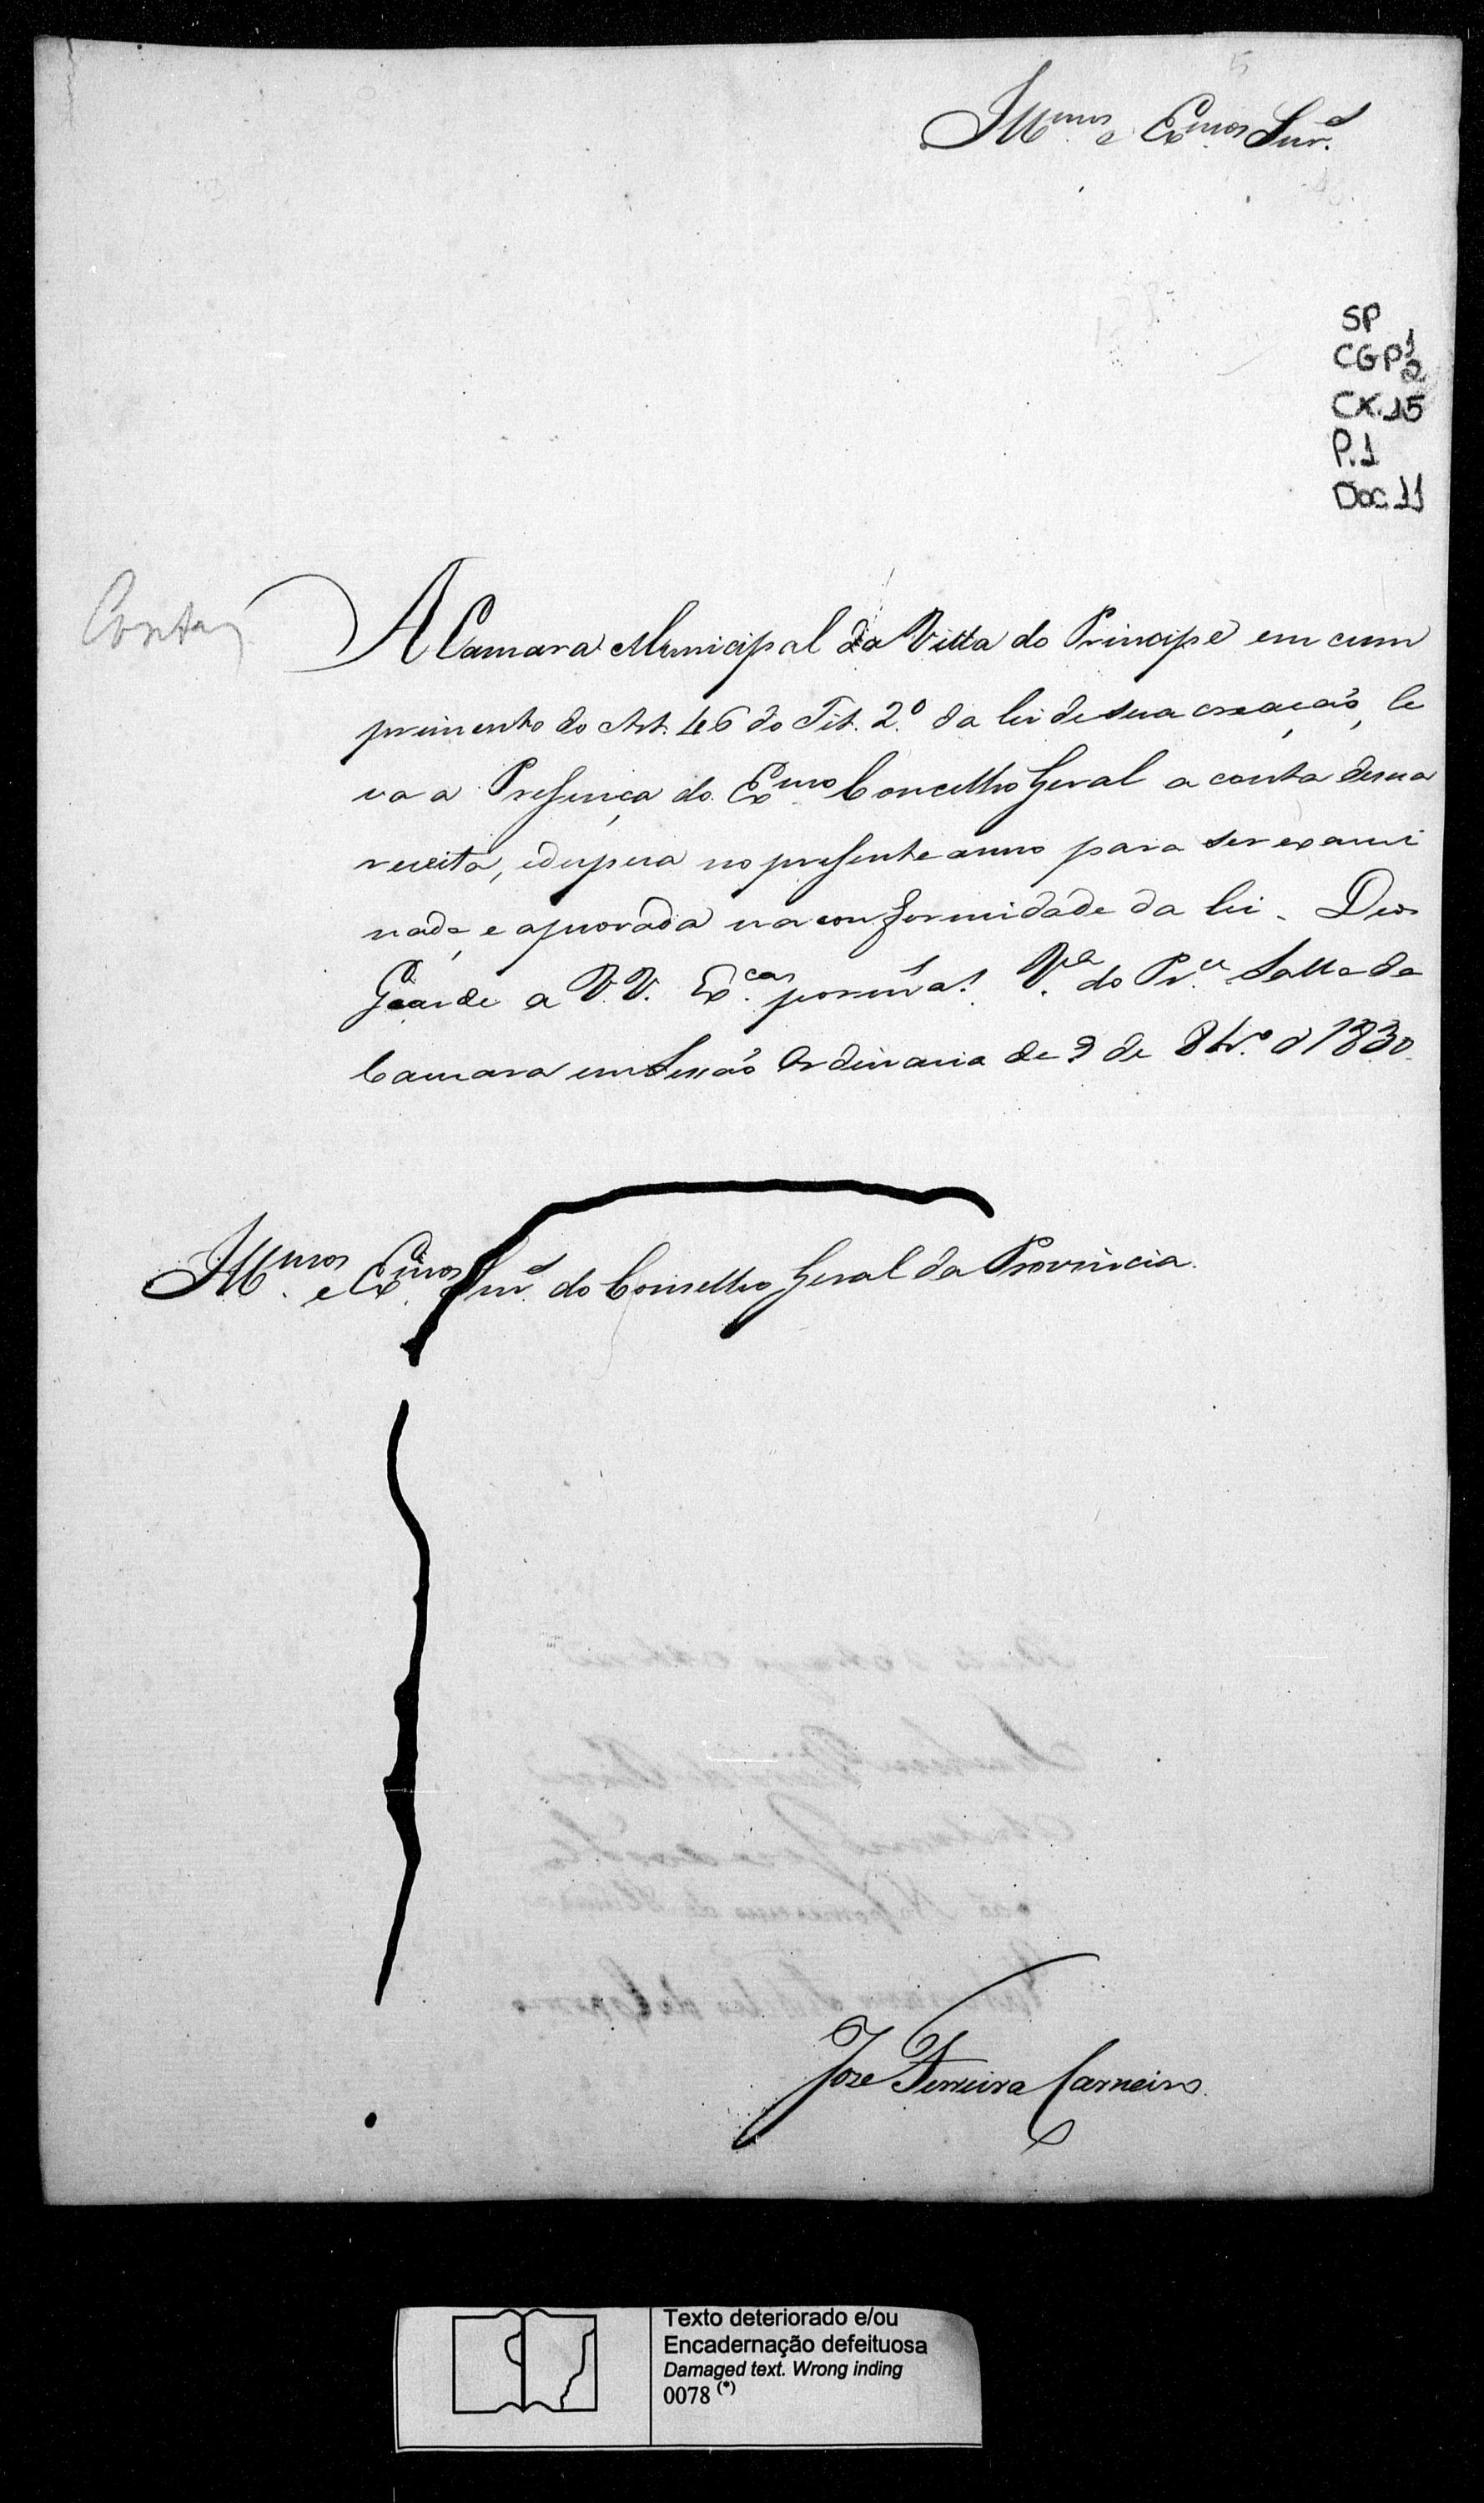 Illmos e Exmos Snrs
SP
CGP1 2
CX.15
P.1
Doc.11
Contas
A Camara Municipal da Villa do Principe em cum
primento do Art. 46 do Tit. 2.º da lei de sua creação, le
va a Presença do Exmo Concelho Geral a conta desua
receita, edespesa no presente anno para ser exami
nada, e aprovada na conformidade da lei. Deos
Guarde a V.V. Ex.cas por m.s a.s V.a do Pr.e Salla da
Camara em Sessão Ordinaria de 9 de 8br.o d 1830.
Illmos e Exmos Snrs do Conselho Geral da Provincia.
Joze Ferreira Carneiro.
Texto deteriorado e/ou
Encadernação defeituosa
Damaged text. Wrong inding
0078 (*)